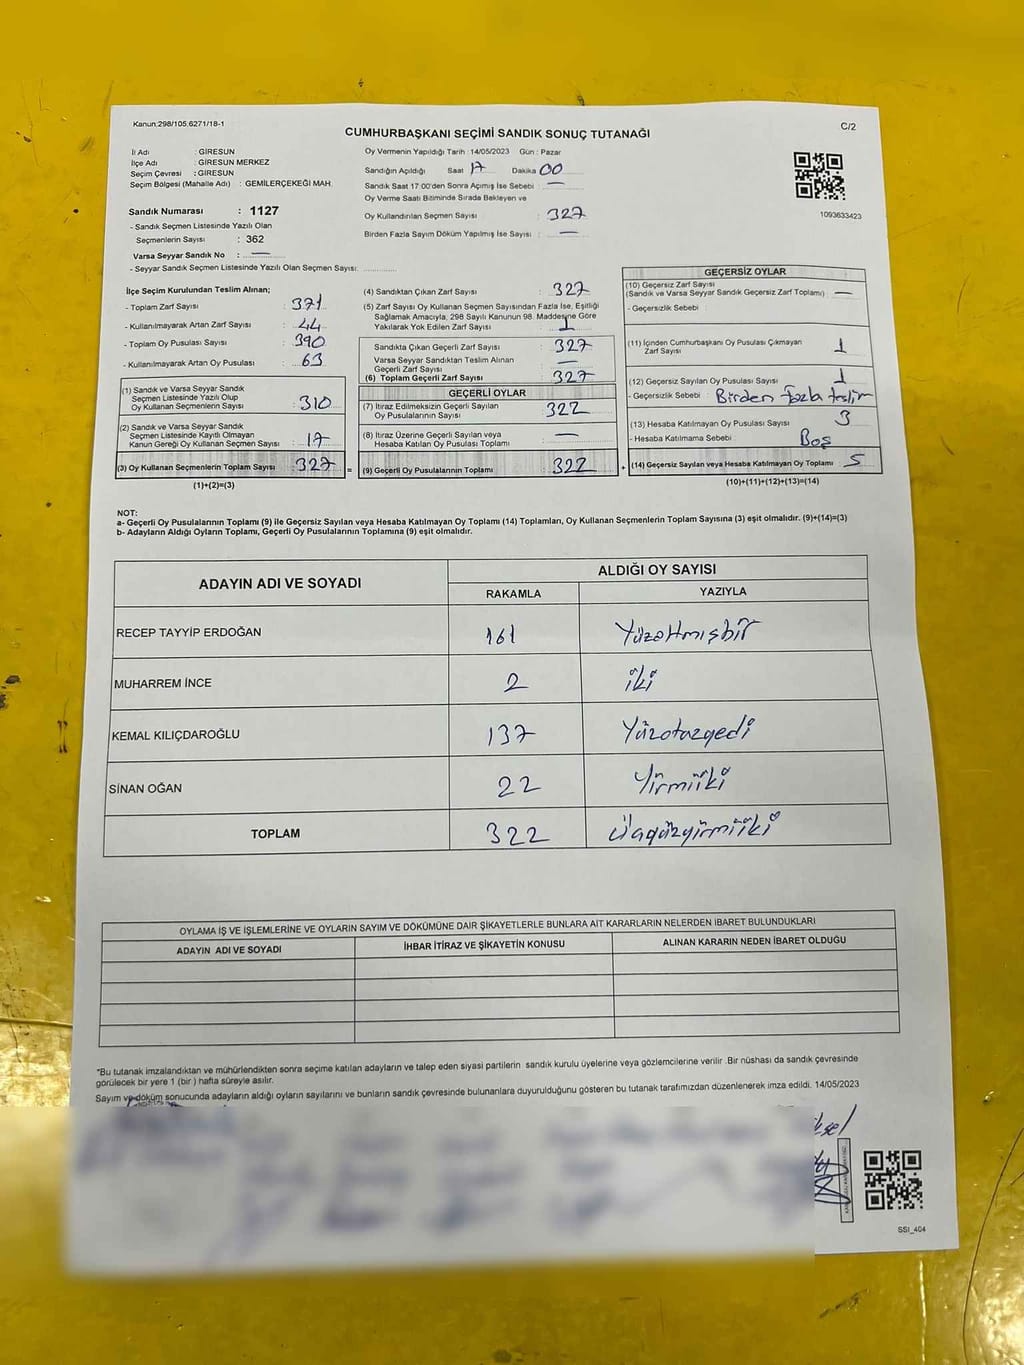 Kanun:298/105,6271/18-1
CUMHURBAŞKANI SEÇİMİ SANDIK SONUÇ TUTANAĞI
C/2
İl Adı : GİRESUN
İlçe Adı : GİRESUN MERKEZ
Seçim Çevresi : GİRESUN
Seçim Bölgesi (Mahalle Adı) : GEMİLERÇEKEĞİ MAH.
Sandık Numarası : 1127
- Sandık Seçmen Listesinde Yazılı Olan
Seçmenlerin Sayısı : 362
Varsa Seyyar Sandık No : —
- Seyyar Sandık Seçmen Listesinde Yazılı Olan Seçmen Sayısı: ..............
Oy Vermenin Yapıldığı Tarih :14/05/2023 Gün : Pazar
Sandığın Açıldığı Saat 17 Dakika 00
Sandık Saat 17:00'den Sonra Açımış İse Sebebi : —
Oy Verme Saati Bitiminde Sırada Bekleyen ve
Oy Kullandırılan Seçmen Sayısı : 327
Birden Fazla Sayım Döküm Yapılmış İse Sayısı : —
1093633423
İlçe Seçim Kurulundan Teslim Alınan;
- Toplam Zarf Sayısı : 371
- Kullanılmayarak Artan Zarf Sayısı : 44
- Toplam Oy Pusulası Sayısı : 390
- Kullanılmayarak Artan Oy Pusulası : 63
(1) Sandık ve Varsa Seyyar Sandık
Seçmen Listesinde Yazılı Olup
Oy Kullanan Seçmenlerin Sayısı : 310
(2) Sandık ve Varsa Seyyar Sandık
Seçmen Listesinde Kayıtlı Olmayan
Kanun Gereği Oy Kullanan Seçmen Sayısı : 17
(3) Oy Kullanan Seçmenlerin Toplam Sayısı : 327 =
(1)+(2)=(3)
(4) Sandıktan Çıkan Zarf Sayısı : 327
(5) Zarf Sayısı Oy Kullanan Seçmen Sayısından Fazla İse, Eşitliği
Sağlamak Amacıyla, 298 Sayılı Kanunun 98. Maddesine Göre
Yakılarak Yok Edilen Zarf Sayısı : 1
Sandıkta Çıkan Geçerli Zarf Sayısı : 327
Varsa Seyyar Sandıktan Teslim Alınan
Geçerli Zarf Sayısı : —
(6) Toplam Geçerli Zarf Sayısı : 327
GEÇERLİ OYLAR
(7) İtiraz Edilmeksizin Geçerli Sayılan
Oy Pusulalarının Sayısı : 322
(8) İtiraz Üzerine Geçerli Sayılan veya
Hesaba Katılan Oy Pusulası Toplamı : —
(9) Geçerli Oy Pusulalarının Toplamı : 322 +
GEÇERSİZ OYLAR
(10) Geçersiz Zarf Sayısı
(Sandık ve Varsa Seyyar Sandık Geçersiz Zarf Toplamı) : —
- Geçersizlik Sebebi :
(11) İçinden Cumhurbaşkanı Oy Pusulası Çıkmayan
Zarf Sayısı : 1
(12) Geçersiz Sayılan Oy Pusulası Sayısı : 1
- Geçersizlik Sebebi : Birden fazla teslim
(13) Hesaba Katılmayan Oy Pusulası Sayısı : 3
- Hesaba Katılmama Sebebi : Boş
(14) Geçersiz Sayılan veya Hesaba Katılmayan Oy Toplamı : 5
(10)+(11)+(12)+(13)=(14)
NOT:
a- Geçerli Oy Pusulalarının Toplamı (9) ile Geçersiz Sayılan veya Hesaba Katılmayan Oy Toplamı (14) Toplamları, Oy Kullanan Seçmenlerin Toplam Sayısına (3) eşit olmalıdır. (9)+(14)=(3)
b- Adayların Aldığı Oyların Toplamı, Geçerli Oy Pusulalarının Toplamına (9) eşit olmalıdır.
ADAYIN ADI VE SOYADI ALDIĞI OY SAYISI
RAKAMLA YAZIYLA
RECEP TAYYİP ERDOĞAN 161 Yüzaltmışbir
MUHARREM İNCE 2 iki
KEMAL KILIÇDAROĞLU 137 Yüzotuzyedi
SİNAN OĞAN 22 Yirmiiki
TOPLAM 322 Üçyüzyirmiiki
OYLAMA İŞ VE İŞLEMLERİNE VE OYLARIN SAYIM VE DÖKÜMÜNE DAİR ŞİKAYETLERLE BUNLARA AİT KARARLARIN NELERDEN İBARET BULUNDUKLARI
ADAYIN ADI VE SOYADI İHBAR İTİRAZ VE ŞİKAYETİN KONUSU ALINAN KARARIN NEDEN İBARET OLDUĞU
*Bu tutanak imzalandıktan ve mühürlendikten sonra seçime katılan adayların ve talep eden siyasi partilerin sandık kurulu üyelerine veya gözlemcilerine verilir .Bir nüshası da sandık çevresinde
görülecek bir yere 1 (bir ) hafta süreyle asılır.
Sayım ve döküm sonucunda adayların aldığı oyların sayılarını ve bunların sandık çevresinde bulunanlara duyurulduğunu gösteren bu tutanak tarafımızdan düzenlenerek imza edildi. 14/05/2023
SSI_404